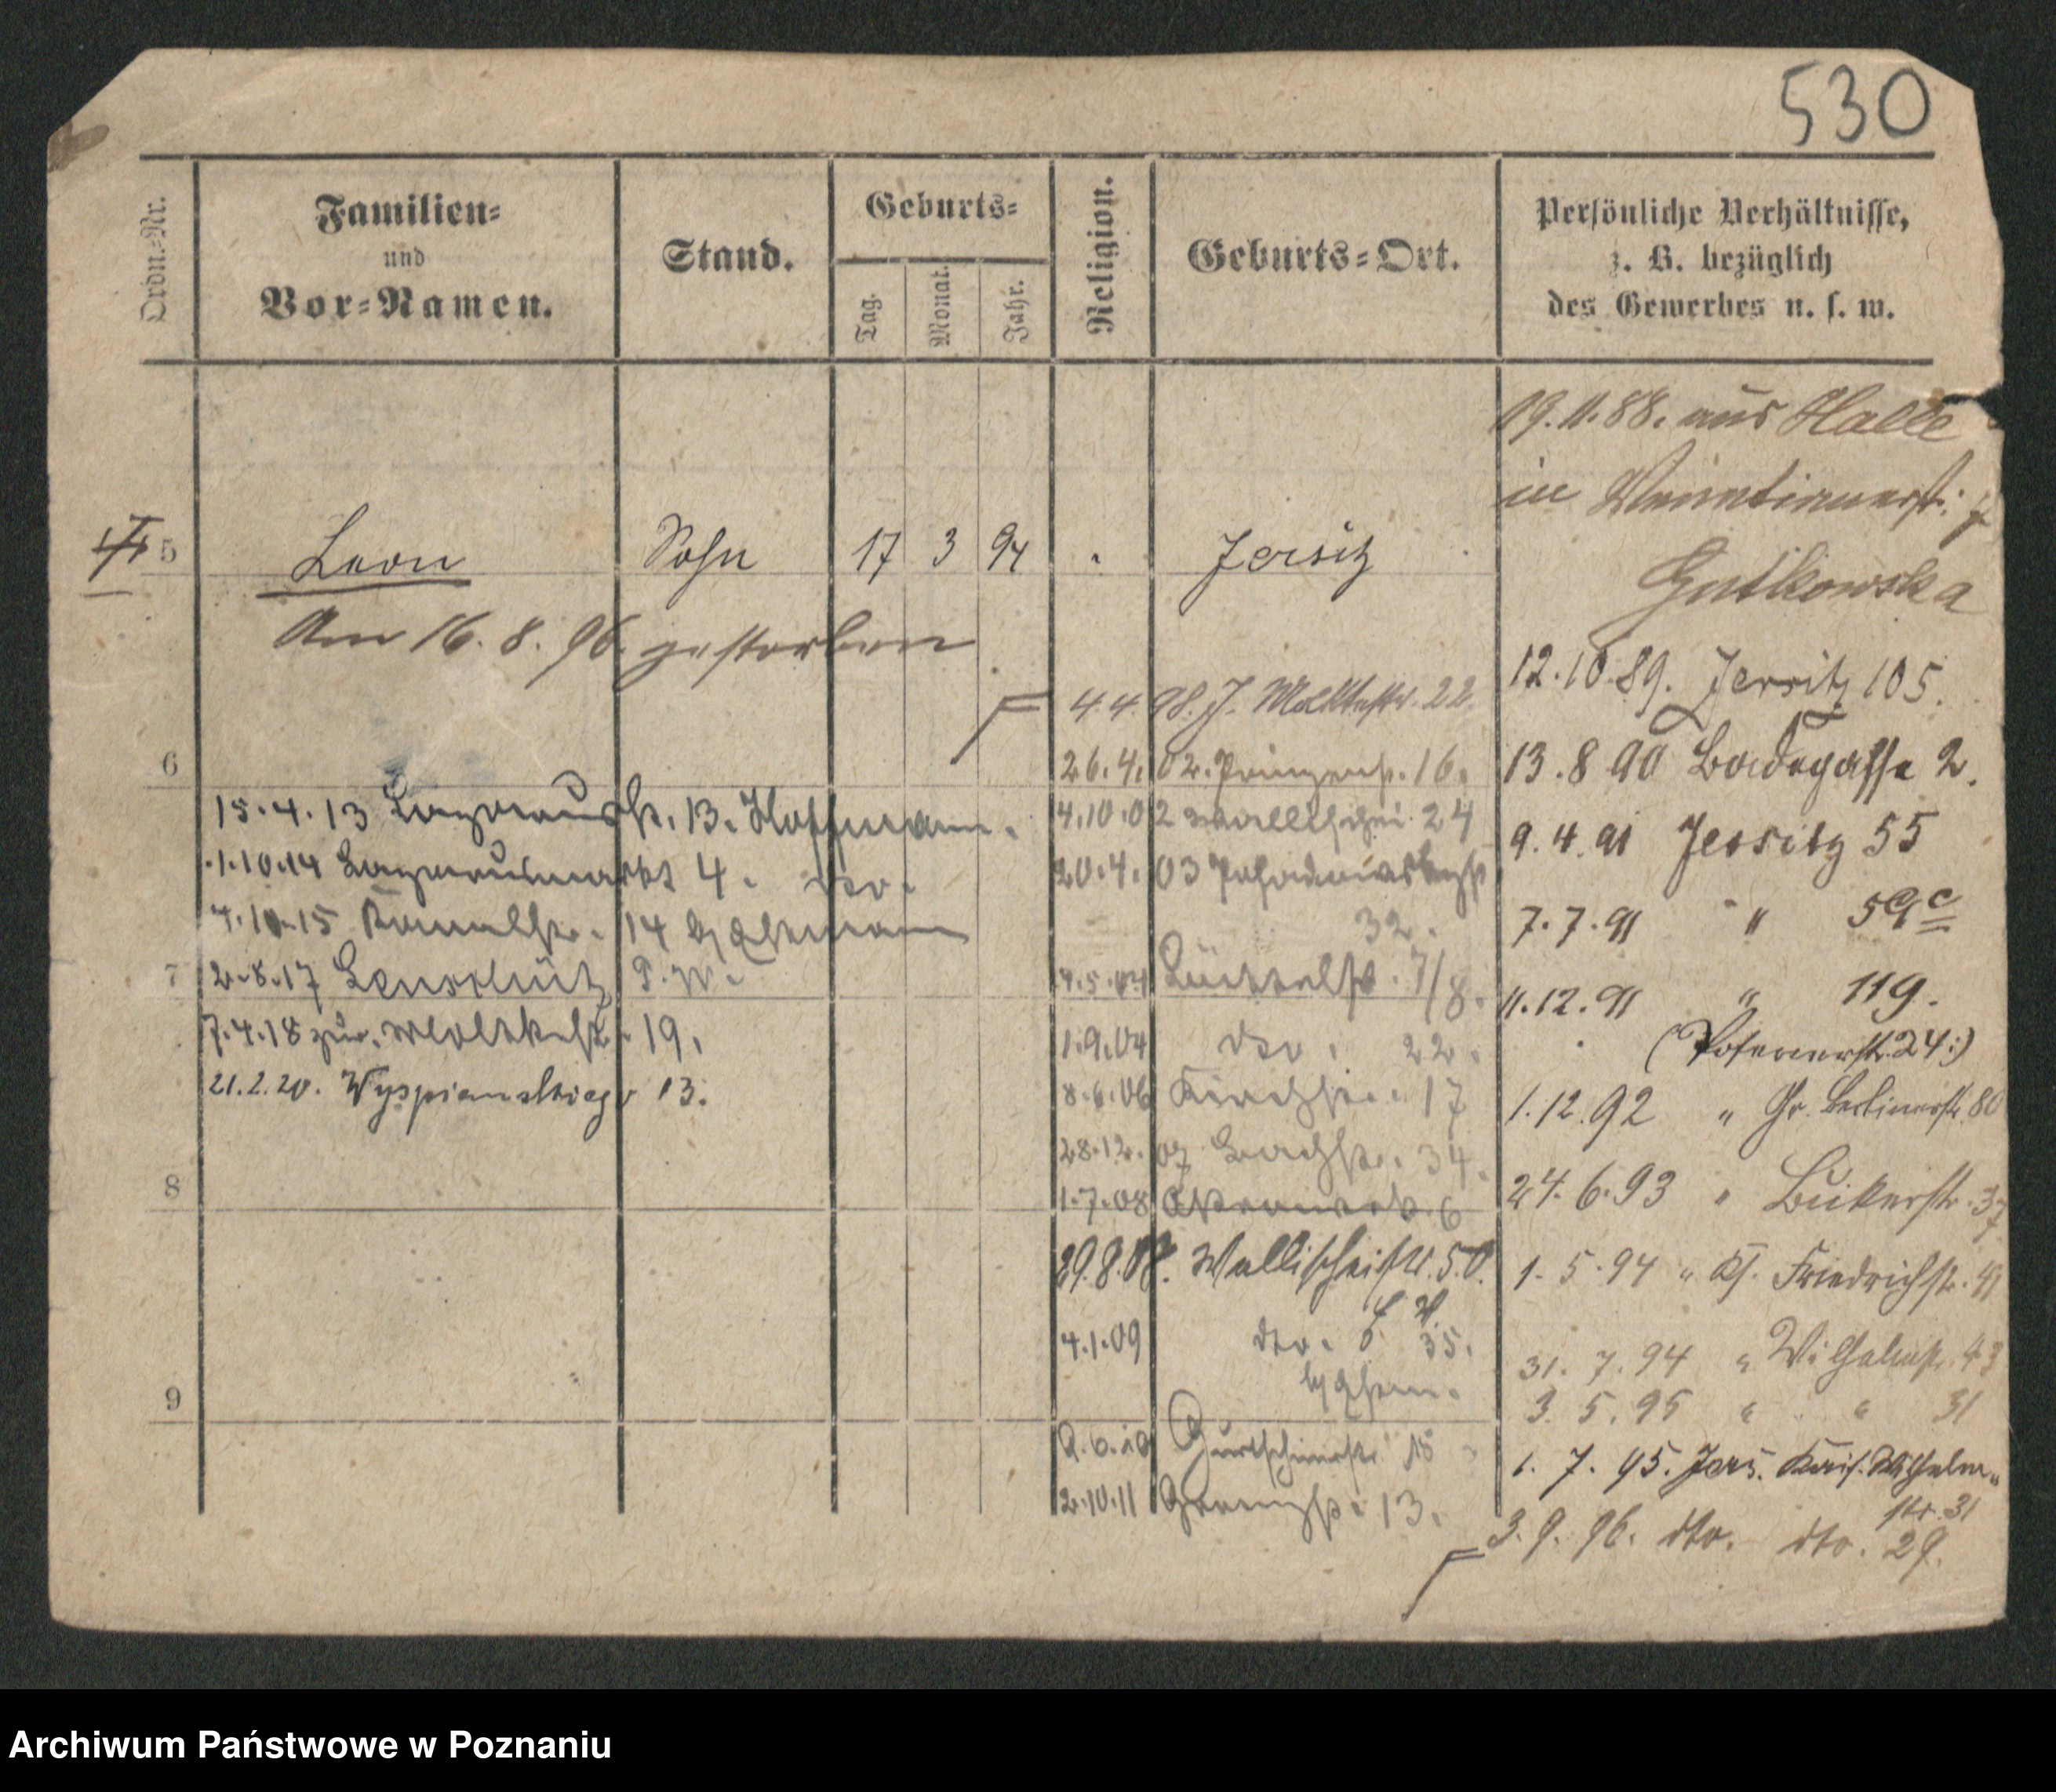 530
Ordn.-Nr.
Familien-
und
Vor-Namen.
Stand.
Geburts-
Tag.
Monat.
Jahr.
Religion.
Geburts-Ort.
Persönliche Verhältnisse,
z. B. bezüglich
des Gewerbes u. s. w.
19.11.88. aus Halle
in
Gutkowska
5 Leon Sohn 17 3 94 " Jersitz
Am 16. 8. 96. gestorben
12.10.89. Jersitz 105.
13.8 90 Badegasse 2.
9.4.91 Jersitz 55
7.7.91 " 59c
11.12.91 " 119.
(Posenerstr. 24.)
1.12.92 " Gr. Berlinerstr. 80
24.6.93 " Bukerstr. 37
1.5.94 " Kl. Friedrichstr. 41
31.7.94 " Wilhelmstr. 43
3.5.95 " " 31
1.7.95. Jers. Kais. Wilhelm-
str. 31
3.9.96. dto. dto. 29.
4.4.98. J. Moltkestr. 22.
6
26.4.02. Prinzenstr. 16.
4.10.02 Wallischei 24
20.4.03
32.
4.5.04 7/8.
1.9.04 dto. 22.
8.6.06 Kirchstr. 17
28.12.07 Bachstr. 34.
1.7.08 6
29.8.08. Wallischeistr. 50.
4.1.09 dto. 35.
b/ Ehem.
9.6.10 Gurtschinerstr. 15
2.10.11 Grenzstr. 13.
15.4.13 Lazarusstr. 13. Hoffmann.
1.10.14 Lazarusmarkt 4. dto.
4.10.15 14 b/ Ehemann
7
2.8.17 T. W.
7.4.18 zur. Moltkestr. 19.
21.2.20. Wyspianskiego 13.
8
9
Archiwum Państwowe w Poznaniu